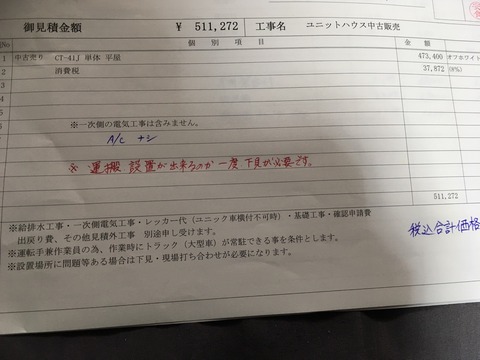 御見積金額 ¥ 511,272 工事名 ユニットハウス中古販売
No 個別項目 金額
1 中古売り CT-41J 単体 平屋 473,400 オフホワイト
2 消費税 37,872 (8%)
※一次側の電気工事は含みません。
A/C ナシ
※ 運搬 設置が出来るのか一度下見が必要です。
511,272
※給排水工事・一次側電気工事・レッカー代（ユニック車横付不可時）・基礎工事・確認申請費
出戻り費、その他見積外工事 別途申し受けます。
※運転手兼作業員の為、作業時にトラック（大型車）が常駐できる事を条件とします。
※設置場所に問題等ある場合は下見・現場打ち合わせが必要になります。
税込合計価格